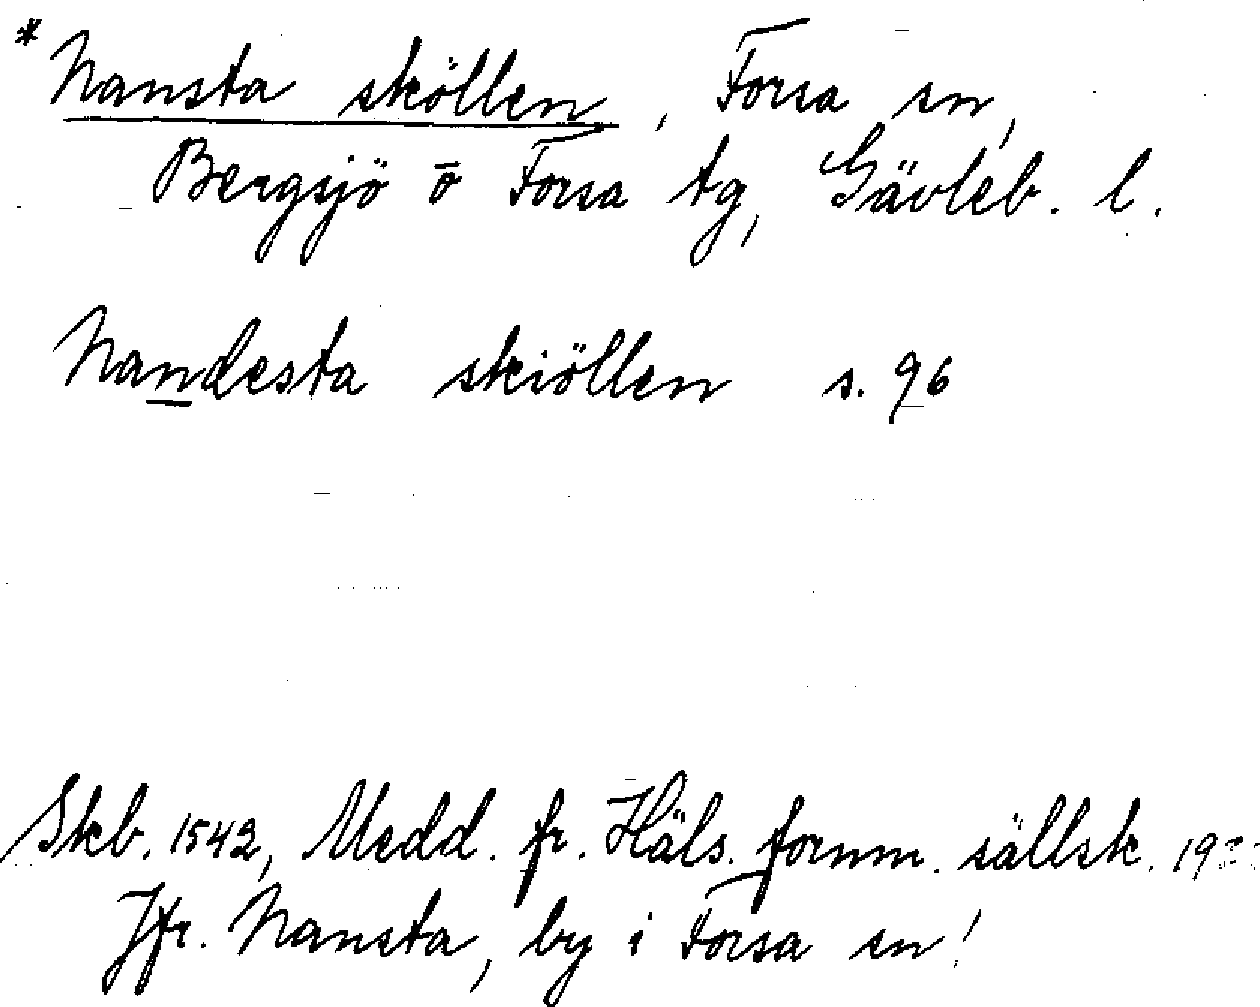 * Nansta sköllen, Forsa sn,
Bergsjö o Forsa tg, Gävleb. l.
Nandesta skiöllen s. 96
Skb. 1542, Medd. fr. Häls. fornm. sällsk.
Jfr. Nansta, by i Forsa sn!